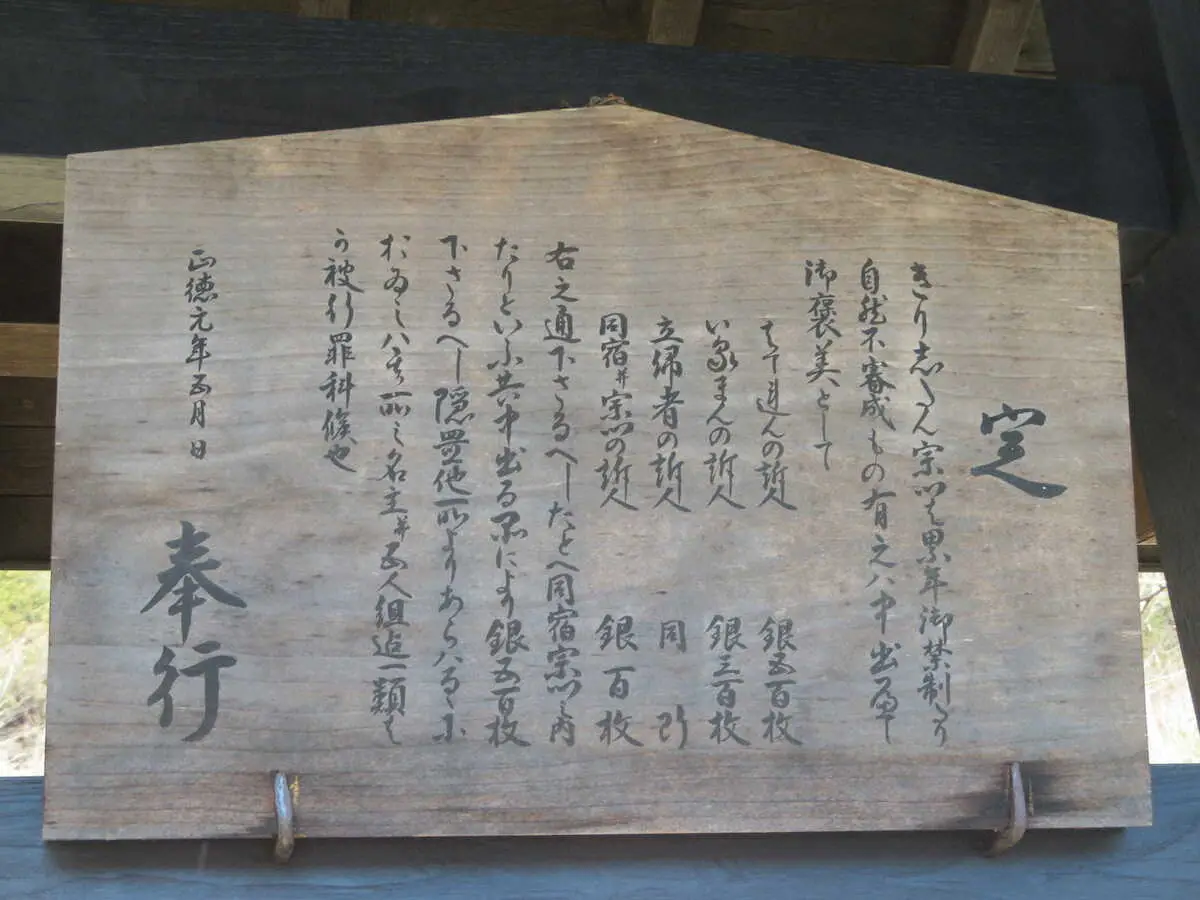 定
きり志たん宗門ハ累年御禁制たり
自然不審成もの有之ハ申出へし
御褒美として
はてれんの訴人 銀五百枚
いるまんの訴人 銀三百枚
立帰者の訴人 同断
同宿并宗門の訴人 銀百枚
右之通下さるへしたとへ同宿宗門之内
たりといふ共申出る品により銀五百枚
下さるへし隠置他所よりあらハるゝに
おゐてハ其所之名主并五人組迄一類と
可被行罪科候也
正徳元年五月日
奉行